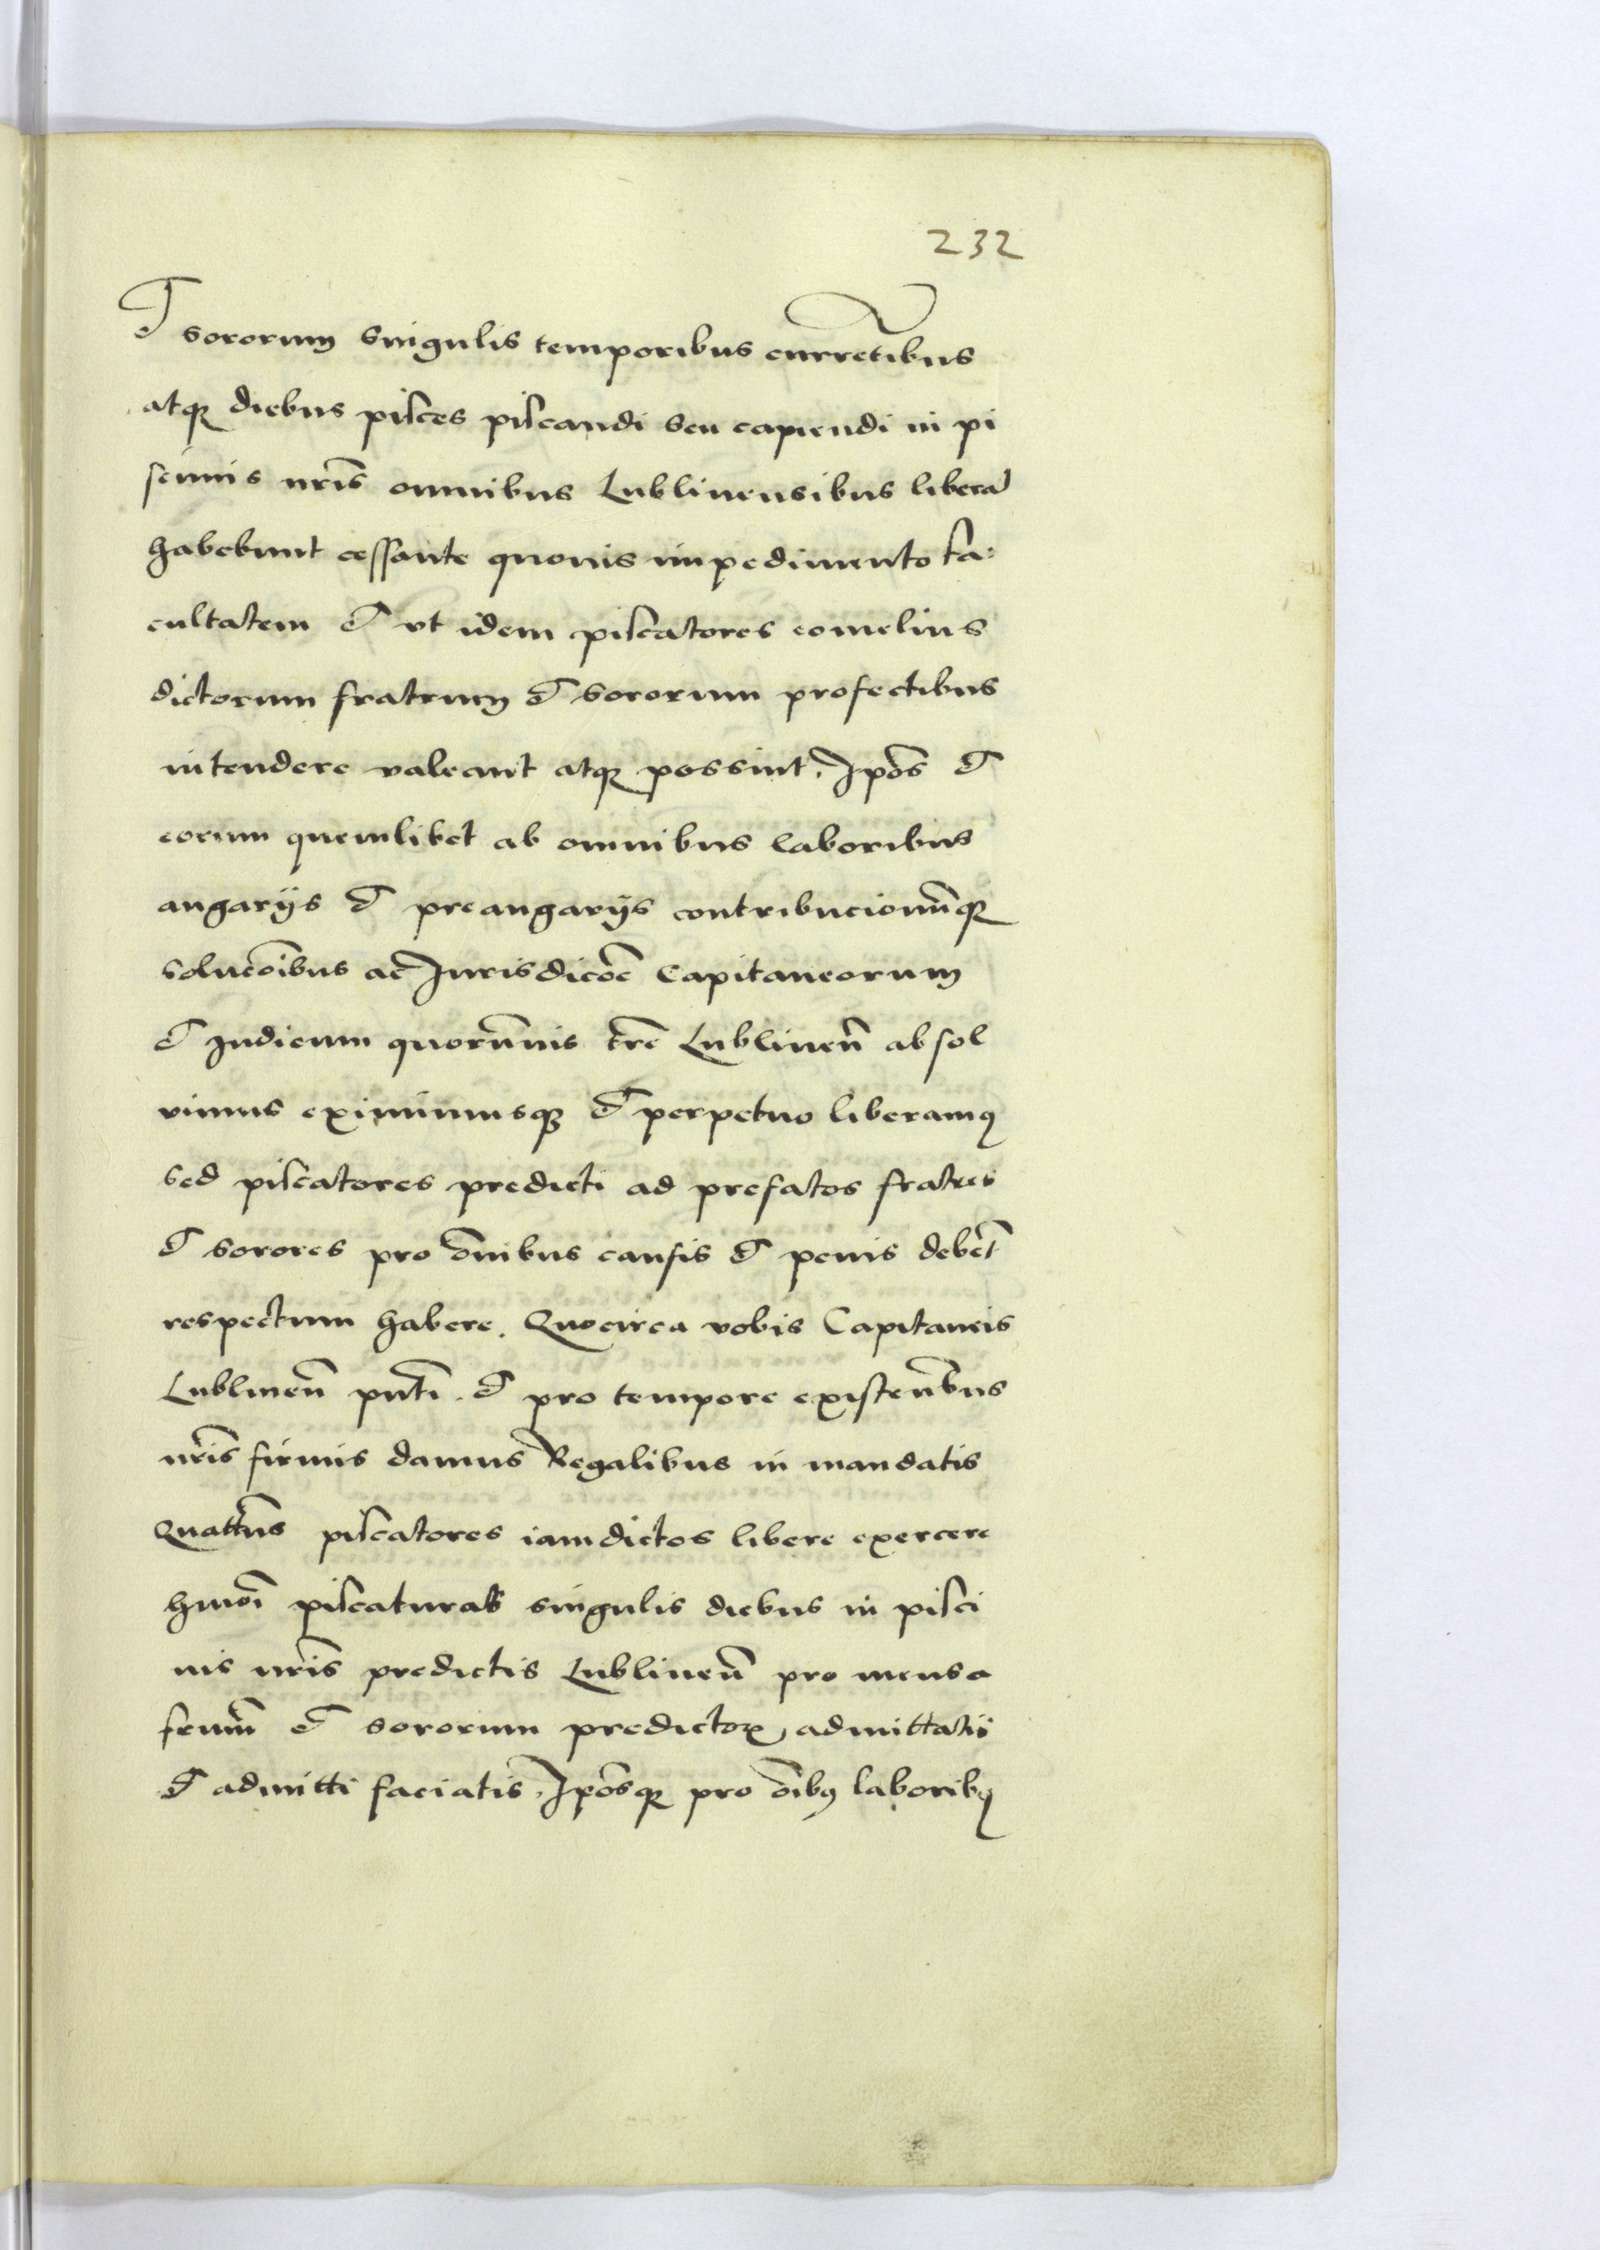 232
et sororum singulis temporibus curretibus
atqꝫ diebus pisces piscandi seu capiendi in pi
scinis nr̃is omnibus Lublinensibus liberã
habebunt cessante quouis impedimento fa:
cultatem et vt idem piscatores eomelius
dictorum fratrum et sororum profectibus
intendere valeant atqꝫ possint. Ip̃os et
eorum quemlibet ab omnibus laboribus
angarijs et preangarijs contribucionũqꝫ
soluc̃oibus ac Jurisdic̃oe Capitaneorum
et Judicum quorũuis tr̃e Lublineñ absol
uimus eximimusqꝫ et perpetuo liberamꝰ
sed piscatores predicti ad prefatos fratres
et sorores pro õnibus causis et penis debẽt
respectum habere. Quocirca vobis Capitaneis
Lublineñ pñti. et pro tempore existeñbus
nr̃is firmis damus Regalibus in mandatis
Quatt̃us piscatores iamdictos libere exercere
hmõi piscaturas singulis diebus in pisci
nis nr̃is predictis Lublineñ pro mensa
fr̃um et sororum predictoꝝ admittatis
et admitti faciatis. Ip̃osqꝫ pro õibꝰ laboribꝰ